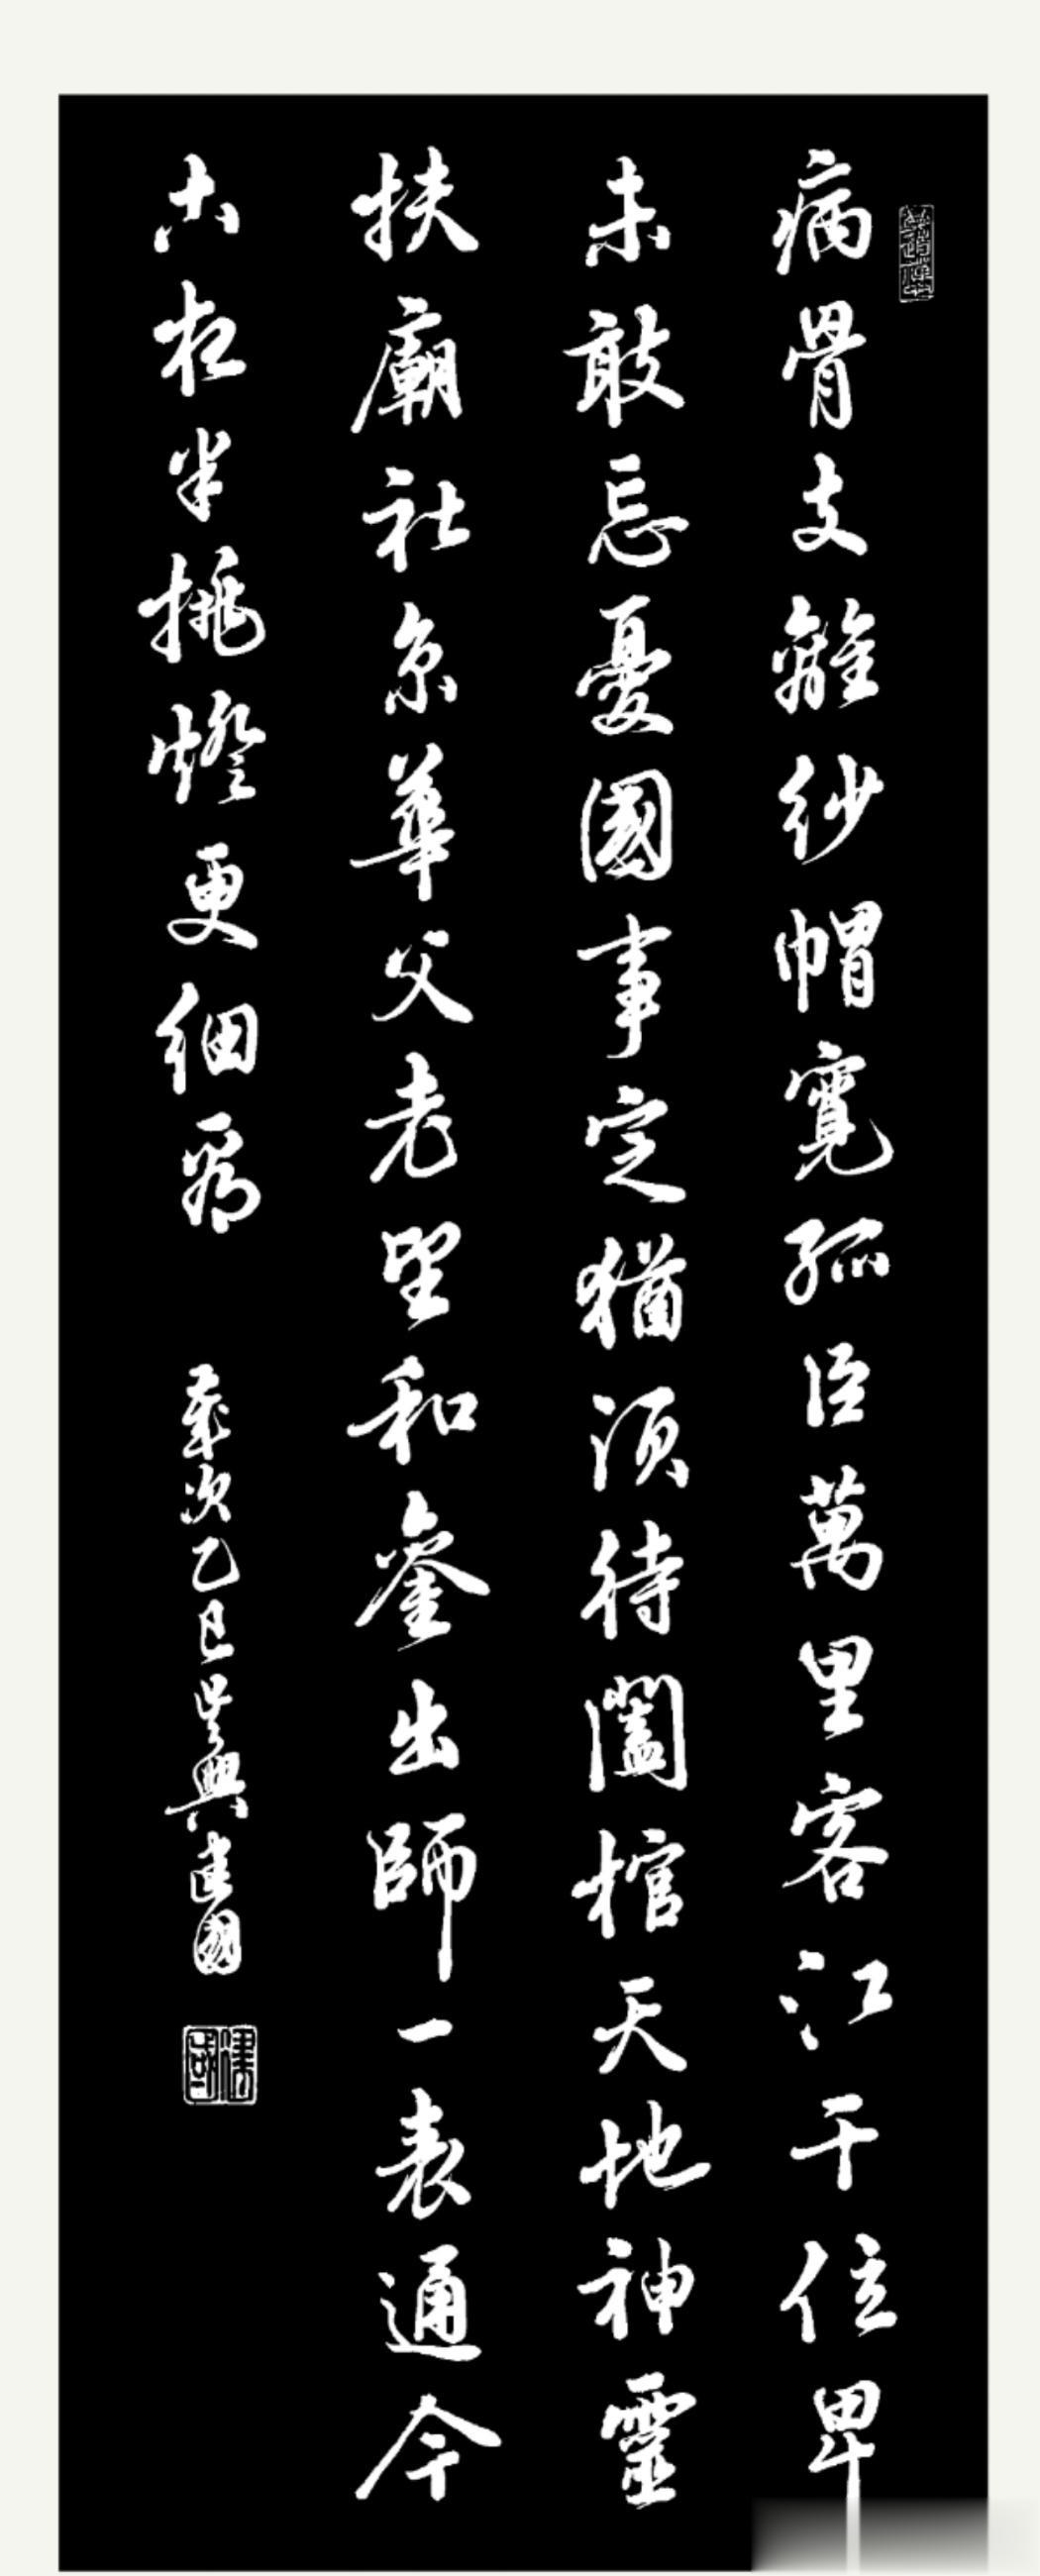 病骨支離紗帽寬孤臣萬里客江干位卑
未敢忘憂國事定猶須待闔棺天地神靈
扶廟社京華父老望和鑾出師一表通今
古夜半挑燈更細看
歲次乙巳吳興建國
建國